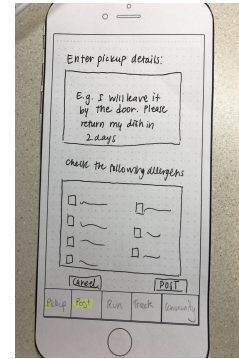 Enter pickup details:
E.g. I will leave it
by the door. Please
return my dish in
2 days
Check the following allergens
Cancel POST
Pickup Post Run Track Community